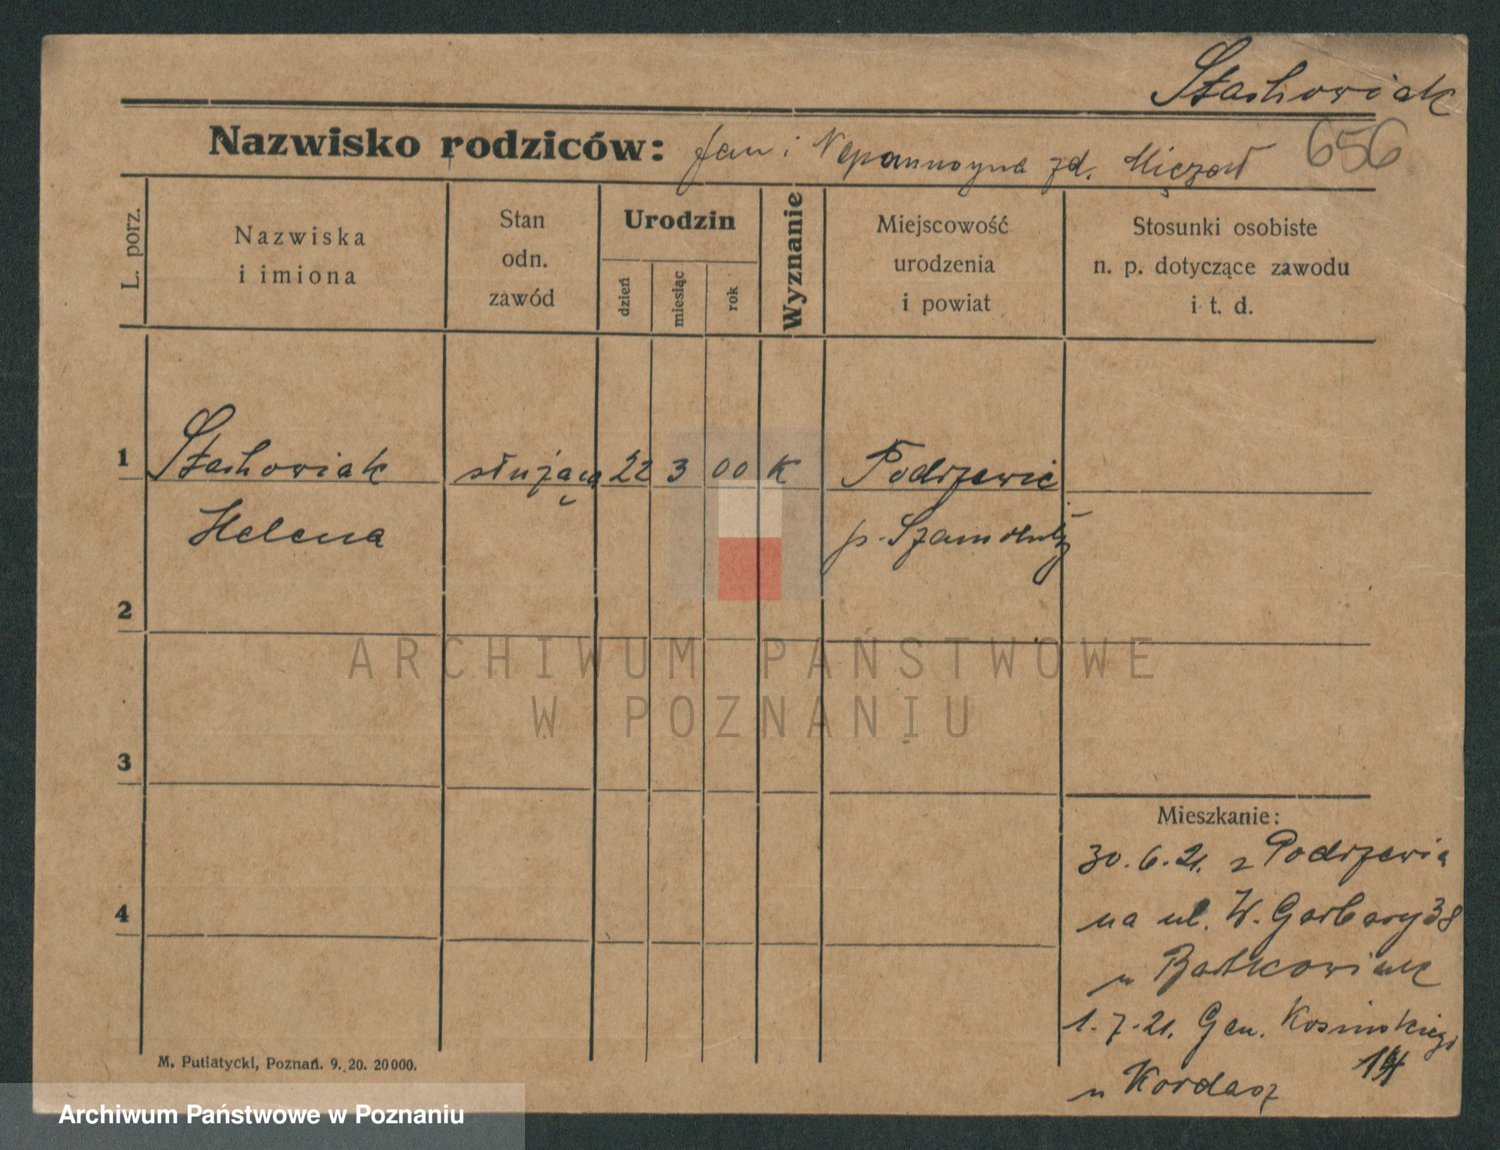 Stachowiak
Nazwisko rodziców: Jan i Nepomucyna zd.
656
L. porz.
Nazwiska
i imiona
Stan
odn.
zawód
Urodzin
dzień
miesiąc
rok
Wyznanie
Miejscowość
urodzenia
i powiat
Stosunki osobiste
n. p. dotyczące zawodu
i t. d.
1 Stachowiak służąca 22 3 00 K Podrzewie
Helena p. Szamotuły
2
ARCHIWUM PAŃSTWOWE
W POZNANIU
3
Mieszkanie:
30.6.21. z Podrzewia
4
na ul. W. Garbary 38
u Bartkowiak
1.7.21. Gen. Kosińskiego
u Kordasz
M. Putiatycki, Poznań. 9. 20. 20000.
Archiwum Państwowe w Poznaniu